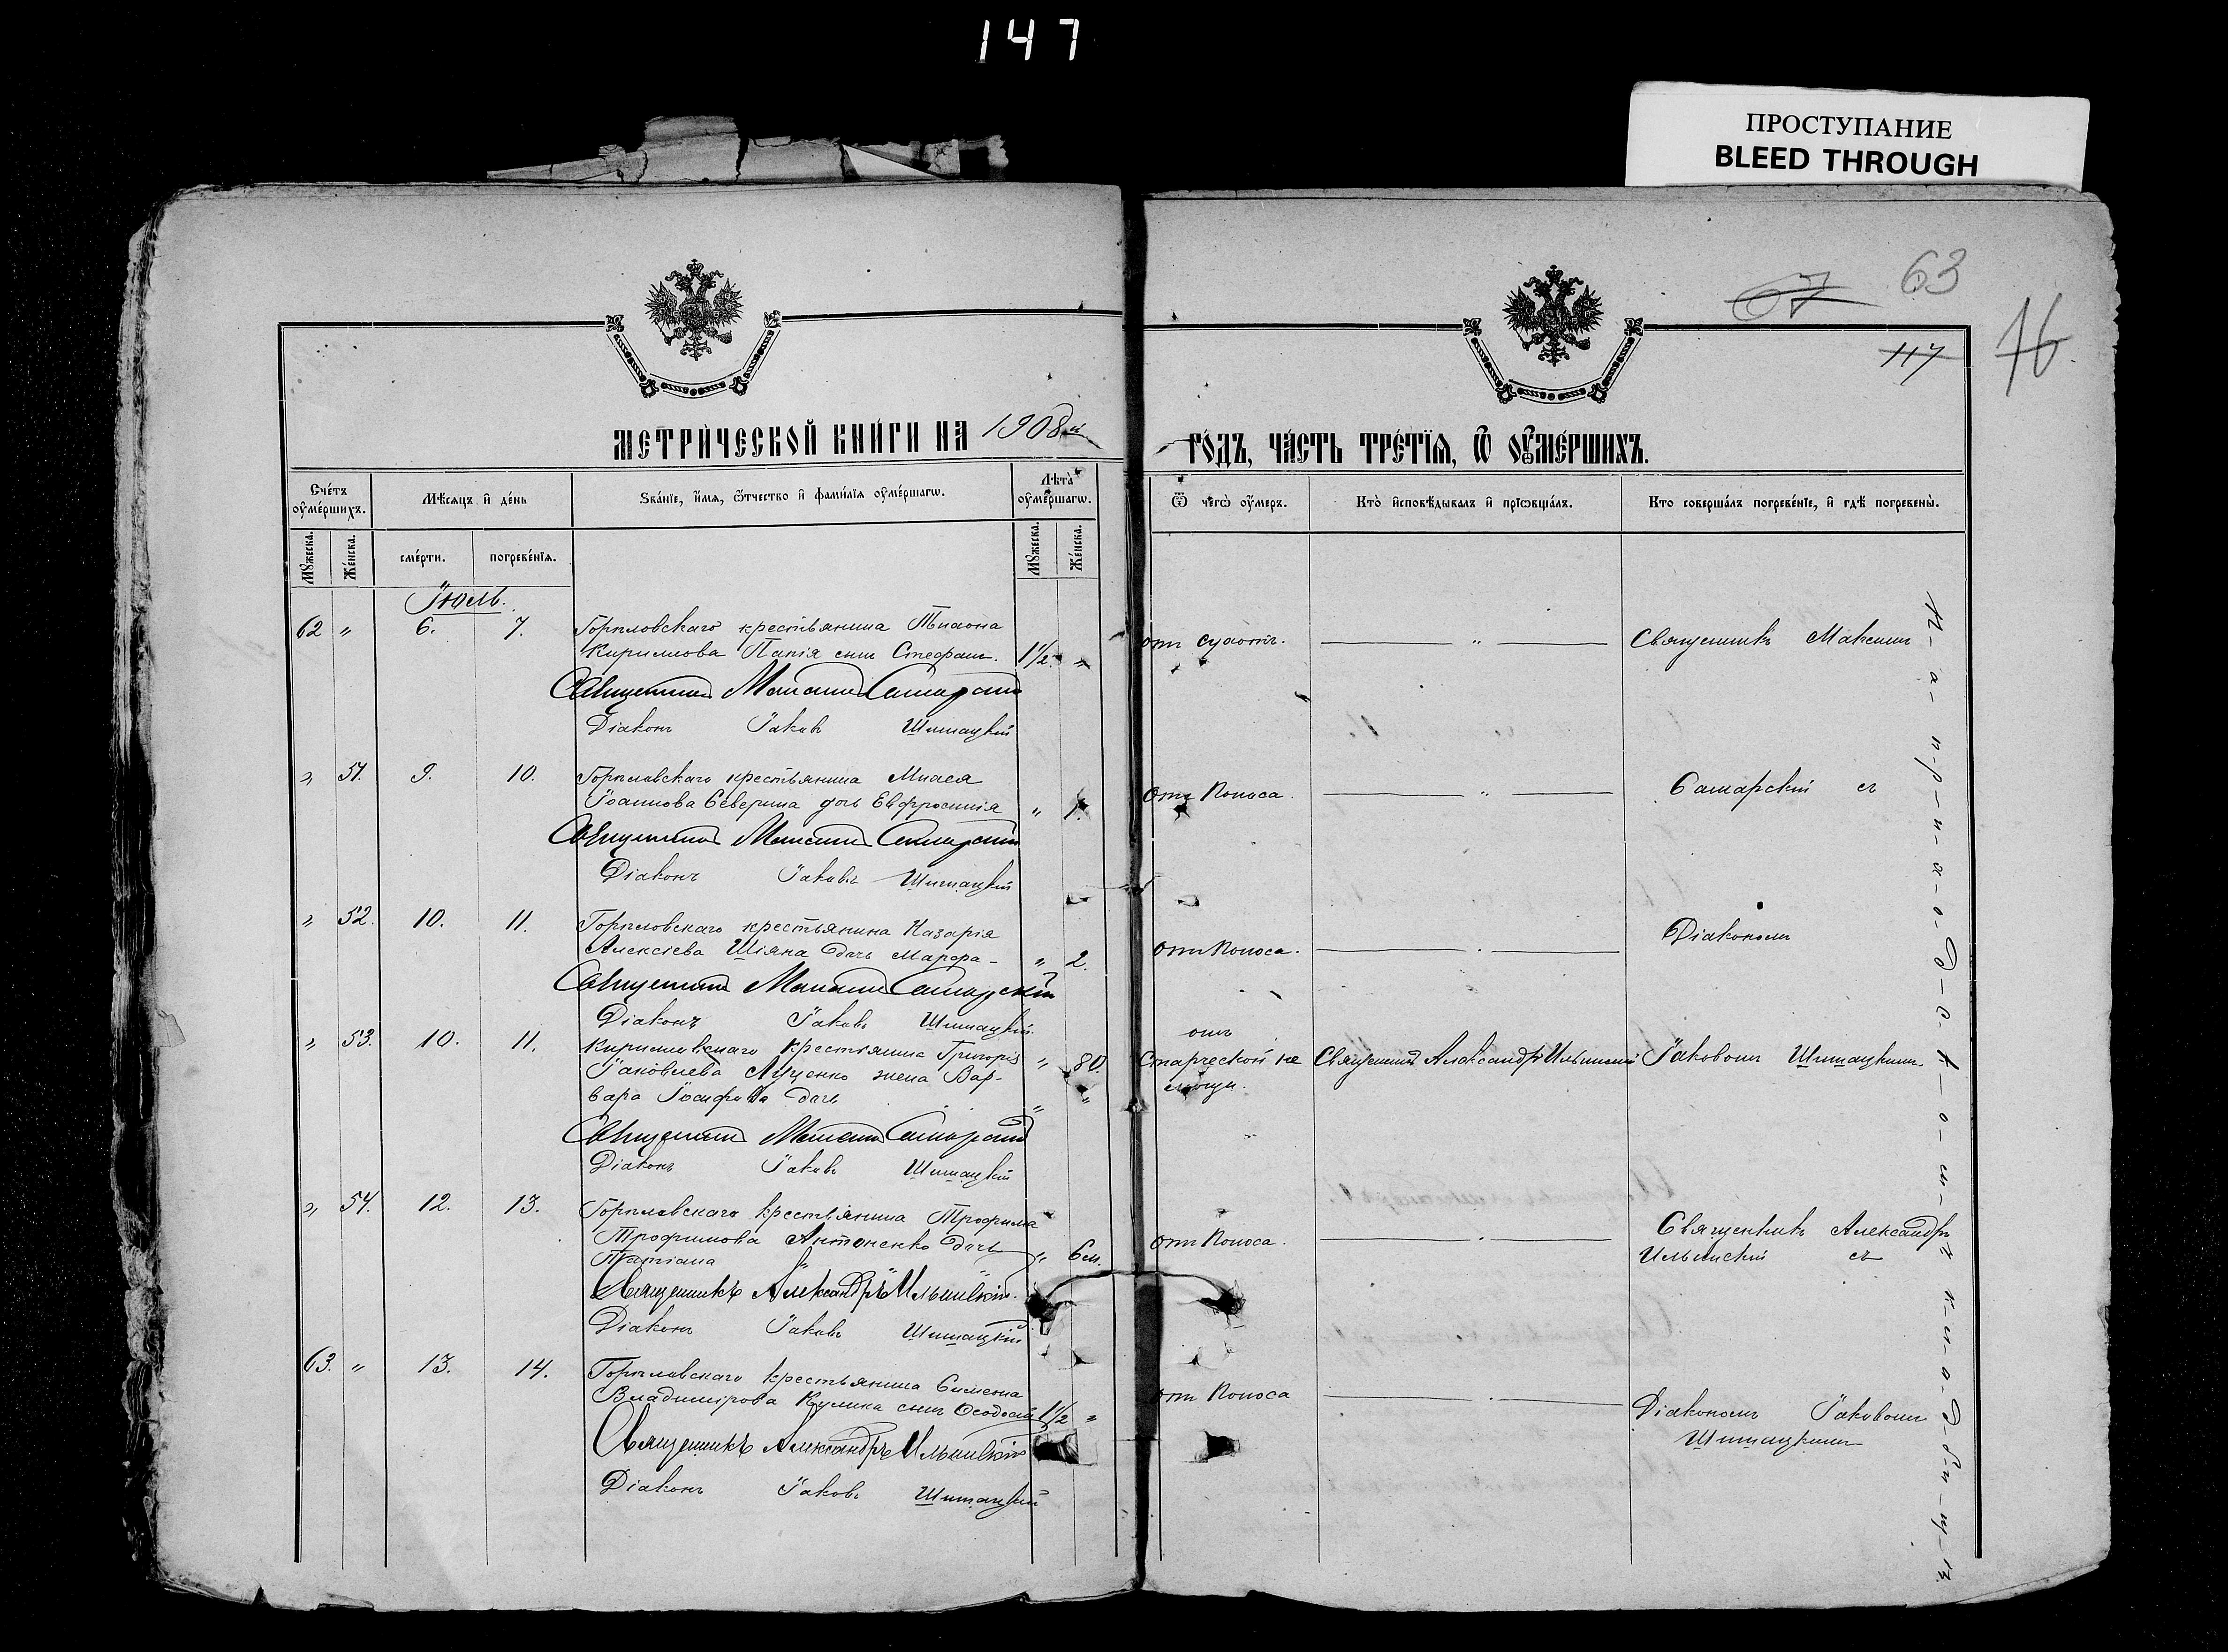 147
ПРОСТУПАНИЕ
BLEED THROUGH
67 63
117 76.
МЕТРИЧЕСКОЙ КНИГИ НА 1908й
ГОДЪ, ЧАСТЬ ТРЕТІЯ, Ѿ ОУМЕРШИХЪ.
Счетъ оумершихъ.
Мѣсяцъ и день
Званіе, имя, отчество и фамилія оумершагѡ.
Лѣта оумершагѡ.
Ѿ чегѡ оумеръ.
Кто исповѣдывалъ и пріѡбщалъ.
Кто совершалъ погребеніе, и гдѣ погребены.
Мужеска.
Женска.
смерти.
погребенія.
Мужеска.
Женска.
Іюль.
62 " 6. 7. Горпловскаго крестьянина
Кириллова Папія сынъ Стефанъ. 1½. " отъ —— " —— Священникъ Максим
Священникъ Максимъ Самарскій
Діаконъ Іаковъ Шишацкій
" 51. 9. 10. Горпловскаго крестьянина Моисея
Іоаннова Северина дочь Евфросинія " 1. Отъ Поноса. —— " —— Самарскій съ
Священникъ Максимъ Самарскій
Діаконъ Іаковъ Шишацкій
" 52. 10. 11. Горпловскаго крестьянина Назарія
Алексіева Шіяна дочь Марфа - " 2. отъ Поноса. —— " —— Діакономъ
Священникъ Максимъ Самарскій
Діаконъ Іаковъ Шишацкій.
" 53. 10. 11. Кирилловскаго крестьянина Григорія " 80. отъ
Іаковлева Луценко жена Вар- Старческой не Священникъ Александръ Ильинскій Іаковомъ Шишацкимъ.
вара Іосифова дочь " " мощи.
Священникъ Максимъ Самарскій
Діаконъ Іаковъ Шишацкій
" 54. 12. 13. Горпловскаго крестьянина Трофима
Трофимова Антоненко дочь
Татіана " 6 м. отъ Поноса. —— " —— Священникъ Александръ
Ильинскій съ
Священникъ Александръ Ильинскій.
Діаконъ Іаковъ Шишацкій
63. " 13. 14. Горпловскаго крестьянина Симеона
Владимірова Кулика сынъ Ѳеодосій 1½ " отъ Поноса —— " —— Діакономъ Іаковомъ
Шишацкимъ
Священникъ Александръ Ильинскій
Діаконъ Іаковъ Шишацкій
Н-а- п-р-и-х-о-д-с-к-о-м-ъ к-л-а-д-б-и-щ-ѣ.